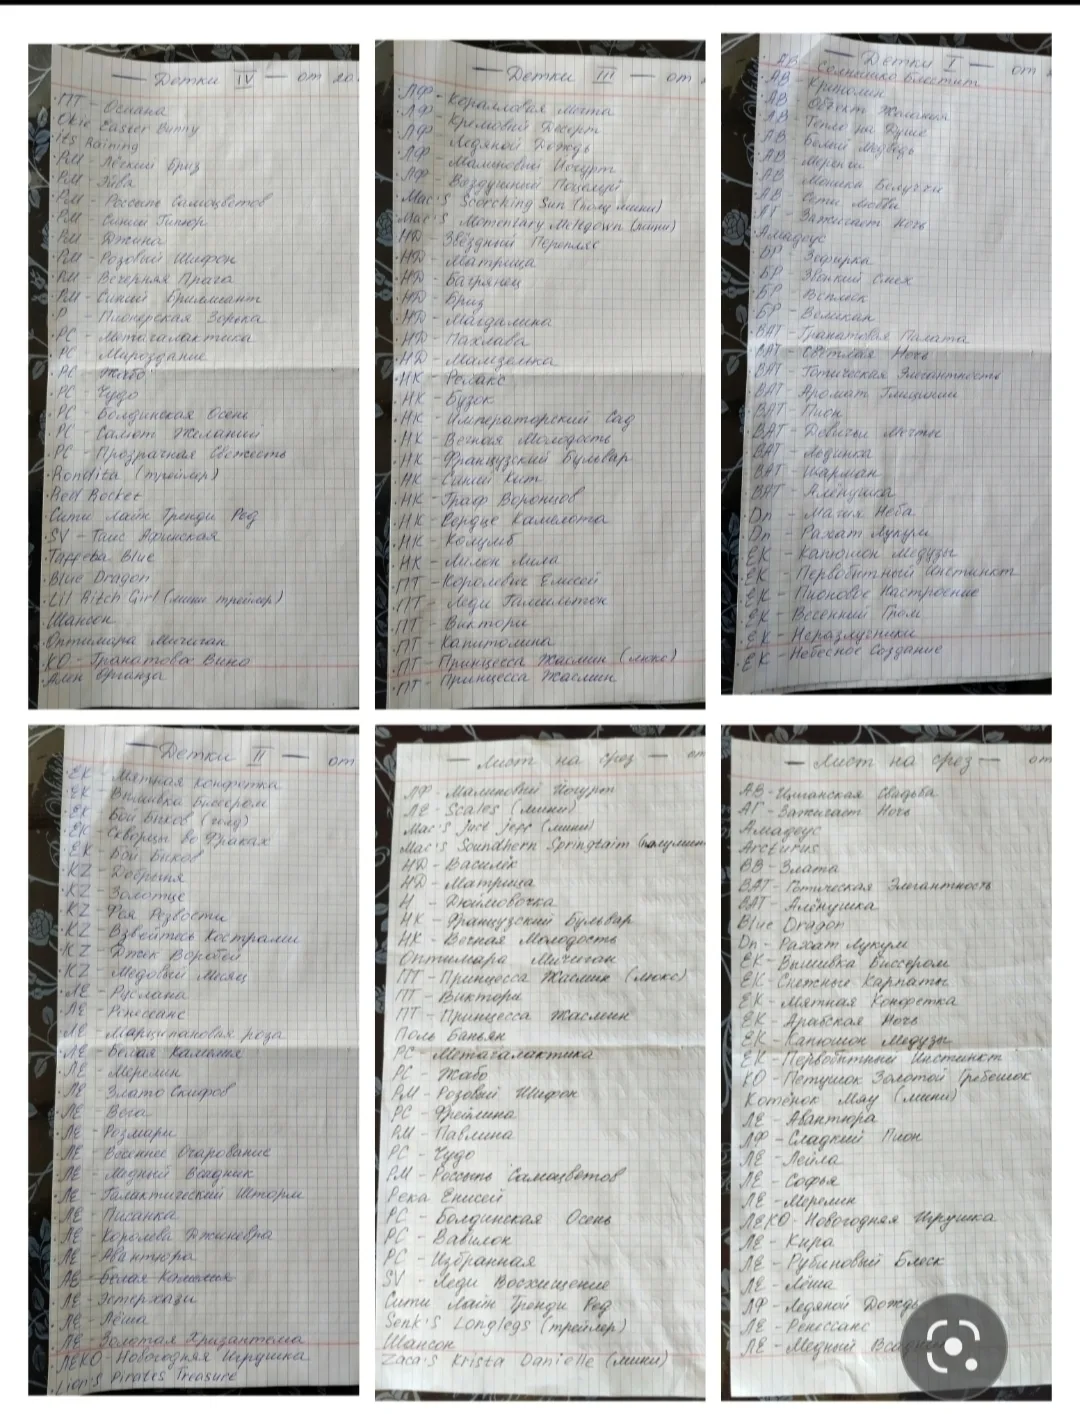 — Детки IV — от 20
ПТ - Осиана
Okie Easter Bunny
Its Raining
РМ - Лёгкий Бриз
РМ - Эйва
РМ - Россыпь Самоцветов
РМ - Синий Гипюр
РМ - Джина
РМ - Розовый Шифон
РМ - Вечерняя Прага
РМ - Синий Бриллиант
Р - Пионерская Зорька
РС - Метагалактика
РС - Мироздание
РС - Жабо
РС - Чудо
РС - Болдинская Осень
РС - Салют Желаний
РС - Прозрачная Свежесть
Rondita (трейлер)
Red Rocket
Сити Лайн Тренди Ред
SV - Таис Афинская
Taffeta Blue
Blue Dragon
Lil Bitch Girl (мини трейлер)
Шансон
Оптимара Мичиган
КО - Гранатовое Вино
Ален Органза
— Детки III — от
ЛФ - Коралловая Мечта
ЛФ - Кремовый Десерт
ЛФ - Ледяной Дождь
ЛФ - Малиновый Йогурт
ЛФ - Воздушный Поцелуй
Mac'S Scorching Sun (полу мини)
Mac'S Momentary Meltdown (мини)
НД - Звёздный Перепляс
НД - Матрица
НД - Багрянец
НД - Бриз
НД - Магдалина
НД - Пахлава
НД - Мамзелька
НК - Релакс
НК - Бузок
НК - Императорский Сад
НК - Вечная Молодость
НК - Французский Бульвар
НК - Синий Кит
НК - Граф Воронцов
НК - Сердце Камелота
НК - Колумб
НК - Лилон Лила
ПТ - Королевич Елисей
ПТ - Леди Гамильтон
ПТ - Виктори
ПТ - Капитолина
ПТ - Принцесса Жасмин (люкс)
ПТ - Принцесса Жасмин
— Детки I — от
АВ - Солнышко Блестит
АВ - Кринолин
АВ - Объект Желания
АВ - Тепло на Душе
АВ - Белый Медведь
АВ - Меренги
АВ - Моника Белуччи
АВ - Сети любви
АГ - Зажигает Ночь
Амадеус
БР - Зефирка
БР - Звонкий Смех
БР - Всплеск
БР - Великан
ВАТ - Гранатовая Палата
ВАТ - Световая Ночь
ВАТ - Готическая Элегантность
ВАТ - Аромат Глицинии
ВАТ - Пион
ВАТ - Девичьи Мечты
ВАТ - Лединка
ВАТ - Шарман
ВАТ - Алёнушка
Dn - Магия Неба
Dn - Рахат Лукум
ЕК - Капюшон Медузы
ЕК - Первобытный Инстинкт
ЕК - Пионовое Настроение
ЕК - Весенний Гром
ЕК - Неразлучники
ЕК - Небесное Создание
— Детки II — от
ЕК - Мятная Конфетка
ЕК - Вышивка Бисером
ЕК - Бой Быков
ЕК - Скворцы во Фраках
ЕК - Бой Быков
KZ - Добрыня
KZ - Золотце
KZ - Фея Резвости
KZ - Взвейтесь Кострами
KZ - Джек Воробей
KZ - Медовый Месяц
ЛЕ - Руслана
ЛЕ - Ренессанс
ЛЕ - Марципановая роза
ЛЕ - Белая Камелия
ЛЕ - Мерелин
ЛЕ - Злато Скифов
ЛЕ - Вега
ЛЕ - Розмари
ЛЕ - Весеннее Очарование
ЛЕ - Медный Всадник
ЛЕ - Галактический Шторм
ЛЕ - Писанка
ЛЕ - Королева Джиневра
ЛЕ - Авантюра
ЛЕ - Белая Камелия
ЛЕ - Эстерхази
ЛЕ - Лёша
ЛЕ - Золотая Хризантема
ЛЕКО - Новогодняя Игрушка
Lion's Pirates Treasure
— Лист на срез — от
ЛФ - Малиновый Йогурт
ЛЕ - Scales (мини)
Mac'S Just Jeff (мини)
Mac'S Soundhern Springtaim (полумини
НД - Василік
НД - Матрица
Н - Дюймовочка
НК - Французский Бульвар
НК - Вечная Молодость
Оптимара Мичиган
ПТ - Принцесса Жасмин (люкс)
ПТ - Виктори
ПТ - Принцесса Жасмин
Поль Баньян
РС - Метагалактика
РС - Жабо
РМ - Розовый Шифон
РС - Фрейлина
РМ - Павлина
РС - Чудо
РМ - Россыпь Самоцветов
Река Енисей
РС - Болдинская Осень
РС - Вавилон
РС - Избранная
SV - Леди Восхищение
Сити Лайн Тренди Ред
Senk'S Longlegs (трейлер)
Шансон
Zaca'S Krista Danielle (мини)
— Лист на срез — от
АВ - Цыганская Свадьба
АГ - Зажигает Ночь
Амадеус
Arcturus
ВВ - Злата
ВАТ - Готическая Элегантность
ВАТ - Алёнушка
Blue Dragon
Dn - Рахат Лукум
ЕК - Вышивка Бисером
ЕК - Снежные Карпаты
ЕК - Мятная Конфетка
ЕК - Арабская Ночь
ЕК - Капюшон Медузы
ЕК - Первобытный Инстинкт
КО - Петушок Золотой Гребешок
Котёнок Мяу (мини)
ЛЕ - Авантюра
ЛФ - Сладкий Пион
ЛЕ - Лейла
ЛЕ - Софья
ЛЕ - Мерелин
ЛЕКО - Новогодняя Игрушка
ЛЕ - Кира
ЛЕ - Рубиновый Блеск
ЛЕ - Лёша
ЛФ - Ледяной Дождь
ЛЕ - Ренессанс
ЛЕ - Медный